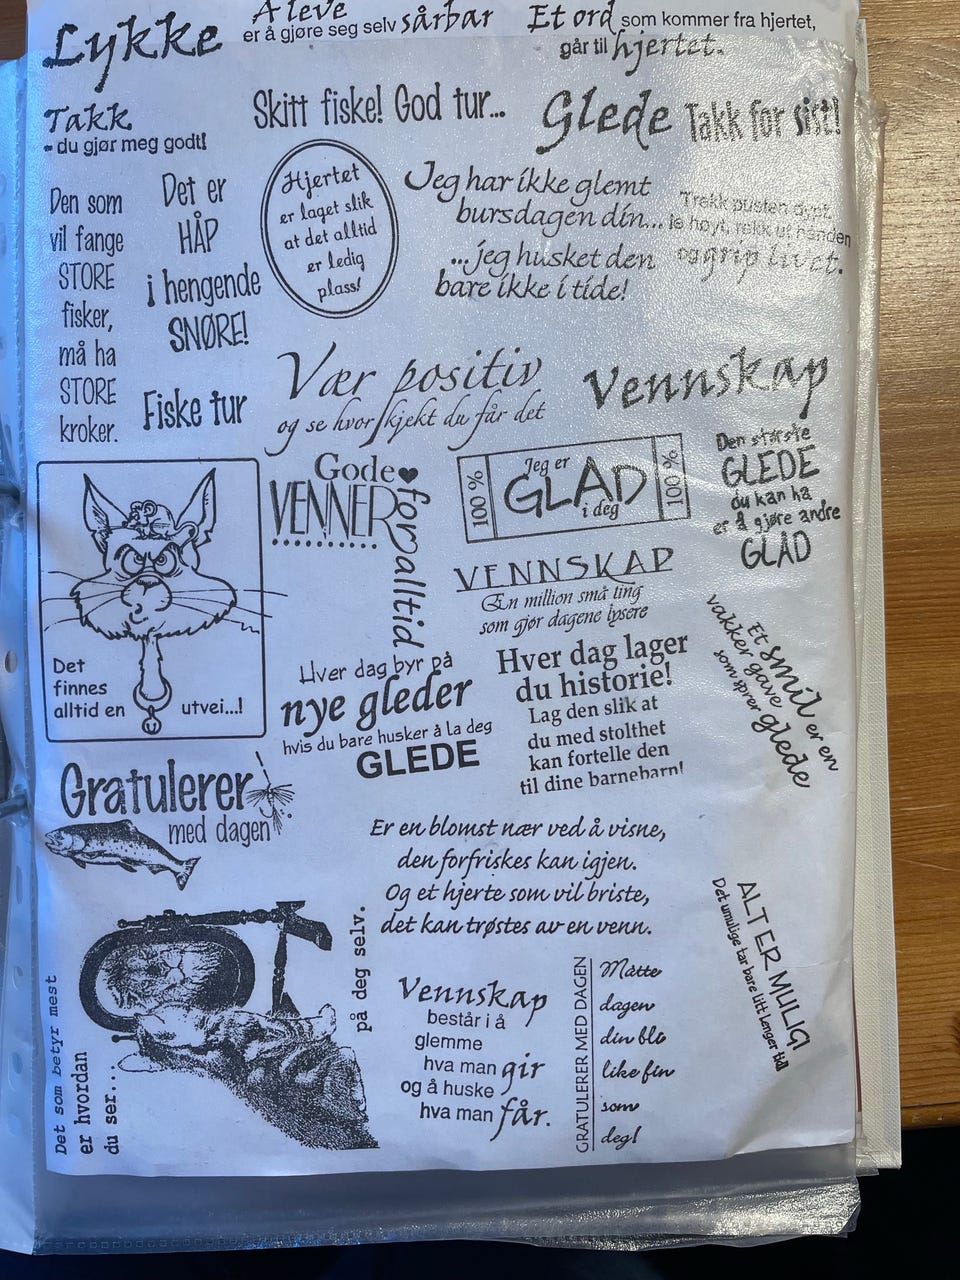 Lykke
Å leve
er å gjøre seg selv sårbar
Et ord som kommer fra hjertet,
går til hjertet.
Takk
- du gjør meg godt!
Skitt fiske! God tur...
Glede
Takk for sist!
Den som
vil fange
STORE
fisker,
må ha
STORE
kroker.
Det er
HÅP
i hengende
SNØRE!
Fiske tur
Hjertet
er laget slik
at det alltid
er ledig
plass!
Jeg har ikke glemt
bursdagen din...
...jeg husket den
bare ikke i tide!
Trekk pusten dypt,
le høyt, rekk ut hånden
og grip livet.
Vær positiv
og se hvor kjekt du får det
Vennskap
Det
finnes
alltid en utvei...!
Gode
VENNER
for alltid
100 %
Jeg er
GLAD
i deg
100 %
Den største
GLEDE
du kan ha
er å gjøre andre
GLAD
VENNSKAP
En million små ting
som gjør dagene lysere
Hver dag byr på
nye gleder
hvis du bare husker å la deg
GLEDE
Hver dag lager
du historie!
Lag den slik at
du med stolthet
kan fortelle den
til dine barnebarn!
Et smil er en
vakker gave
som sprer glede
Gratulerer
med dagen
Er en blomst nær ved å visne,
den forfriskes kan igjen.
Og et hjerte som vil briste,
det kan trøstes av en venn.
Det som betyr mest
er hvordan
du ser...
på deg selv.
Vennskap
består i å
glemme
hva man gir
og å huske
hva man får.
GRATULERER MED DAGEN
Måtte
dagen
din bli
like fin
som
deg!
ALT ER MULIG!
Det umulige tar bare litt lenger tid